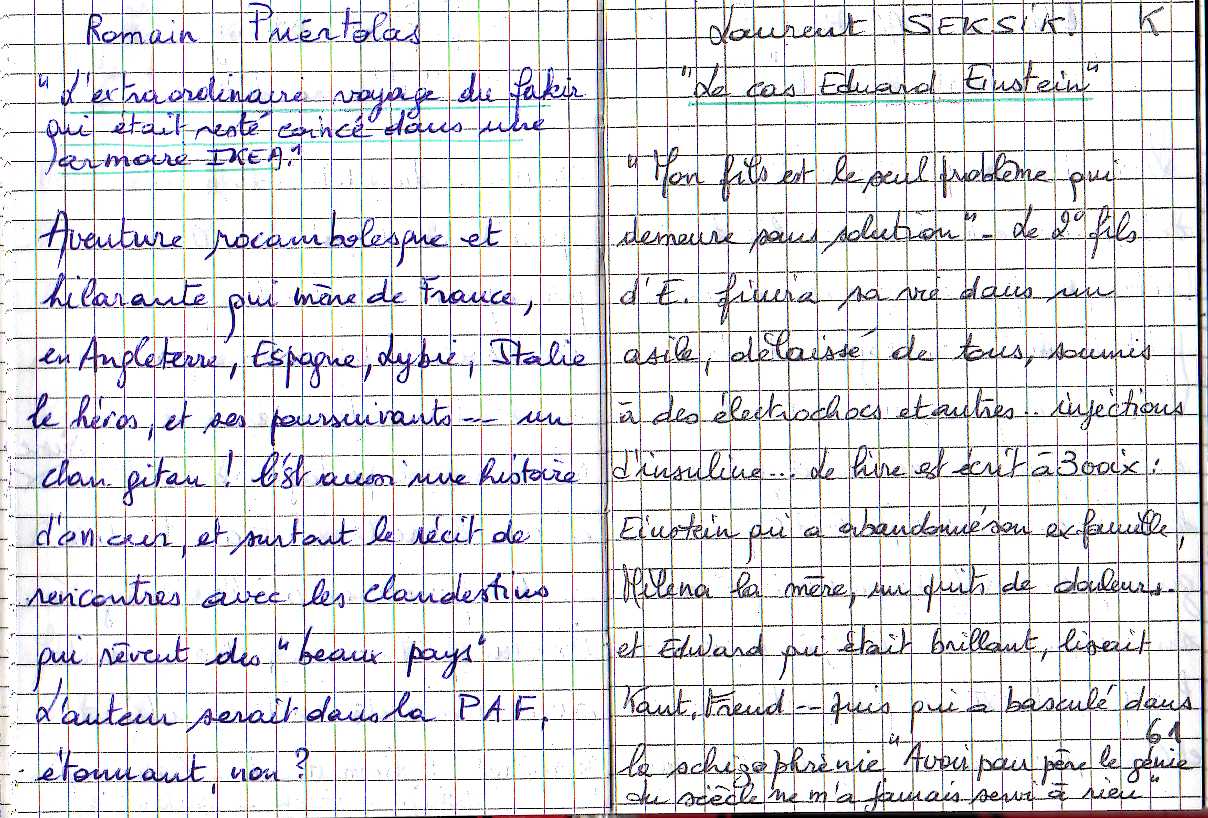 Romain Puértolas
"L'extraordinaire voyage du fakir
qui était resté coincé dans une
armoire IKEA."
Aventure rocambolesque et
hilarante qui mène de France,
en Angleterre, Espagne, Lybie, Italie
le héros, et ses poursuivants -- un
clan gitan ! C'est aussi une histoire
d'un cœur, et surtout le récit de
rencontres avec les clandestins
qui rêvent des "beaux pays"
L'auteur serait dans la PAF,
étonnant, non ?
Laurent SEKSIK. K
"Le cas Eduard Einstein"
"Mon fils est le seul problème qui
demeure sans solution" - Le 2° fils
d'E. finira sa vie dans un
asile, délaissé de tous, soumis
à des électrochocs et autres.. injections
d'insuline... Le livre est écrit à 3 voix :
Einstein qui a abandonné son ex famille,
Miléna la mère, un puits de douleurs.
et Edward qui était brillant, lisait
Kant, Freud -- puis qui a basculé dans
61
la schizophrénie "Avoir pour père le génie
du siècle ne m'a jamais servi à rien"